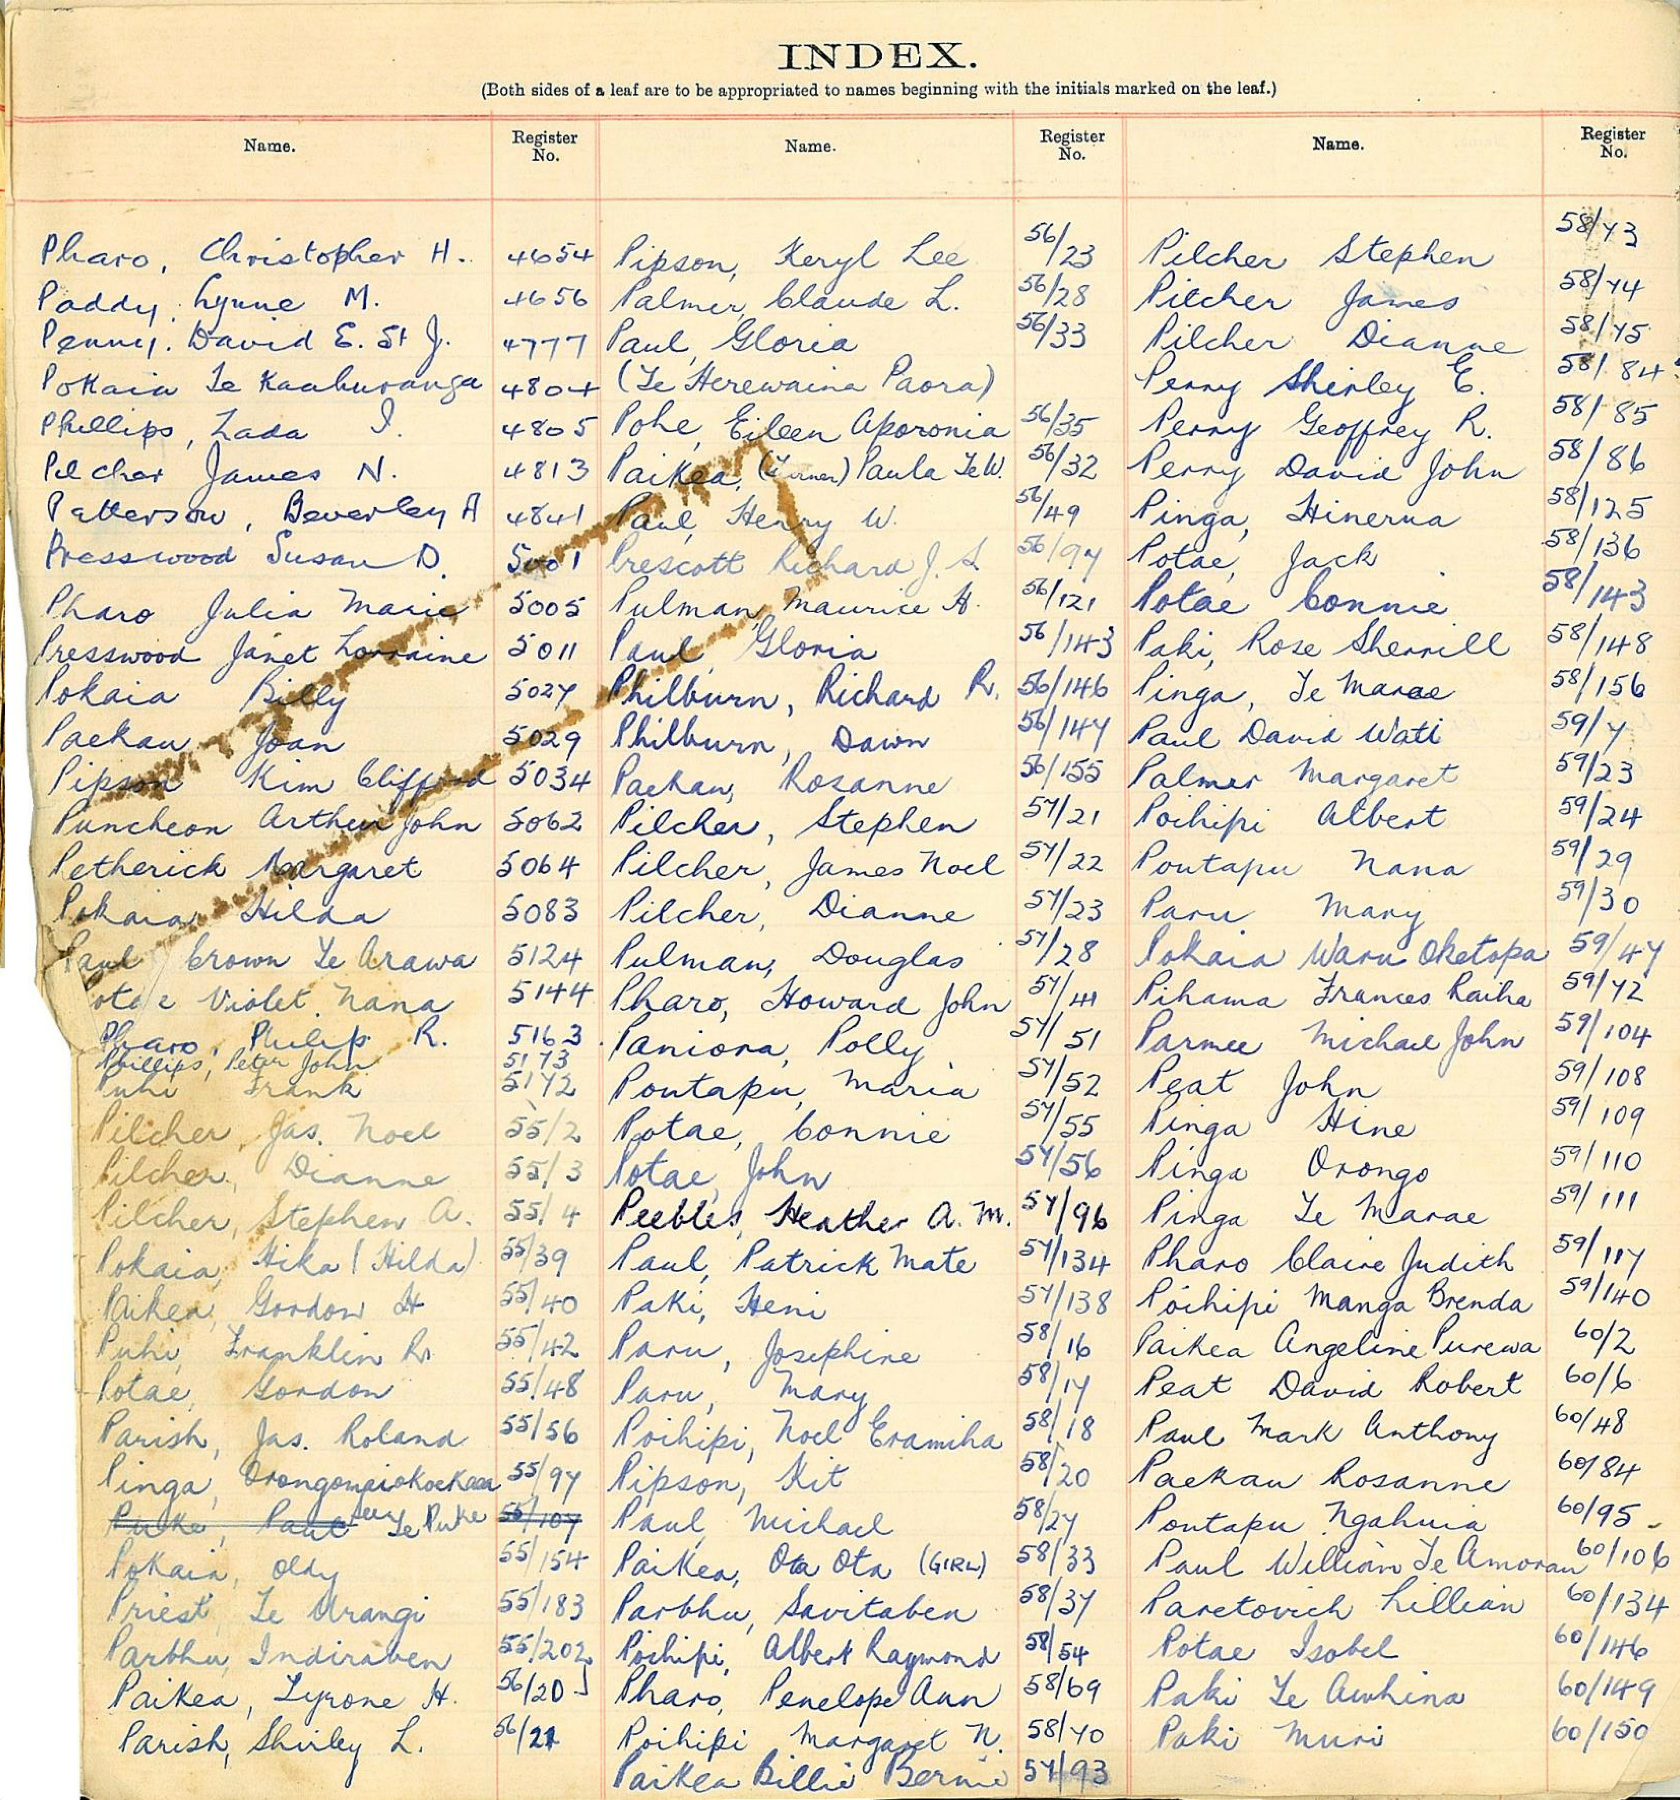 INDEX.
(Both sides of a leaf are to be appropriated to names beginning with the initials marked on the leaf.)
Name. Register No. Name. Register No. Name. Register No.
Pharo, Christopher H. 4654
Paddy, Lynne M. 4656
Penny. David E. St J. 4777
Pokaia Te Kaahuranga 4804
Phillips, Zada I. 4805
Pilcher James N. 4813
Patterson, Beverley A 4841
Presswood Susan D. 5001
Pharo Julia Marie 5005
Presswood Janet Lorraine 5011
Pokaia Billy 5027
Paekau Joan 5029
Pipson Kim Clifford 5034
Puncheon Arthur John 5062
Petherick Margaret 5064
Pokaia Hilda 5083
Paul Crown Te Arawa 5124
otae Violet Nana 5144
Pharo, Philip R. 5163
Phillips, Peter John 5173
Puhi Frank 5172
Pilcher, Jas. Noel 55/2
Pilcher, Dianne 55/3
Pilcher, Stephen A. 55/4
Pokaia, Hika (Hilda) 55/39
Paikea, Gordon H 55/40
Puhi, Franklin R. 55/42
Potae, Gordon 55/48
Parish, Jas. Roland 55/56
Pinga, 55/97
Puke, Paul Te Puke 55/107
Pokaia, Oldy 55/154
Priest, Te Urangi 55/183
Parbhu, Indiraben 55/202
Paikea, Tyrone H. 56/20
Parish, Shirley L. 56/21
Pipson, Keryl Lee 56/23
Palmer, Claude L. 56/28
Paul, Gloria 56/33
(Te Herewaina Paora)
Pohe, Eileen Aporonia 56/35
Paikea, (Turner) Paula Te W. 56/32
Paul, Henry W. 56/49
Prescott Richard J. S. 56/97
Pulman, Maurice H. 56/121
Paul, Gloria 56/143
Philburn, Richard R. 56/146
Philburn, Dawn 56/147
Paekau, Rosanne 56/155
Pilcher, Stephen 57/21
Pilcher, James Noel 57/22
Pilcher, Dianne 57/23
Pulman, Douglas 57/28
Pharo, Howard John 57/41
Paniora, Polly 57/51
Poutapu, Maria 57/52
Potae, Connie 57/55
Potae, John 57/56
Peebles, Heather A. M. 57/96
Paul, Patrick Mate 57/134
Paki, Heni 57/138
Paru, Josephine 58/16
Paru, Mary 58/17
Poihipi, Noel Eramiha 58/18
Pipson, Kit 58/20
Paul, Michael 58/27
Paikea, Ota Ota (GIRL) 58/33
Parbhu, Savitaben 58/37
Poihipi, Albert Raymond 58/54
Pharo, Penelope Ann 58/69
Poihipi Margaret N. 58/70
Paikea Billie Bernie 57/93
Pilcher Stephen 58/73
Pilcher James 58/74
Pilcher Dianne 58/75
Perry Shirley E. 58/84
Perry Geoffrey R. 58/85
Perry David John 58/86
Pinga, Hinerua 58/125
Potae, Jack 58/136
Potae Connie 58/143
Paki, Rose Sherrill 58/148
Pinga, Te Marae 58/156
Paul David Wati 59/7
Palmer Margaret 59/23
Poihipi Albert 59/24
Poutapu Nana 59/29
Paru Mary 59/30
Pokaia Waru Oketopa 59/47
Pihama Frances Raiha 59/72
Parmee Michael John 59/104
Peat John 59/108
Pinga Hine 59/109
Pinga Orongo 59/110
Pinga Te Marae 59/111
Pharo Claire Judith 59/117
Poihipi Manga Brenda 59/140
Paikea Angeline Purewa 60/2
Peat David Robert 60/6
Paul Mark Anthony 60/48
Paekau Rosanne 60/84
Poutapu Ngahuia 60/95
Paul William Te Amoran 60/106
Paretovich Lillian 60/134
Potae Isobel 60/146
Paki Te Awhina 60/149
Paki Muri 60/150